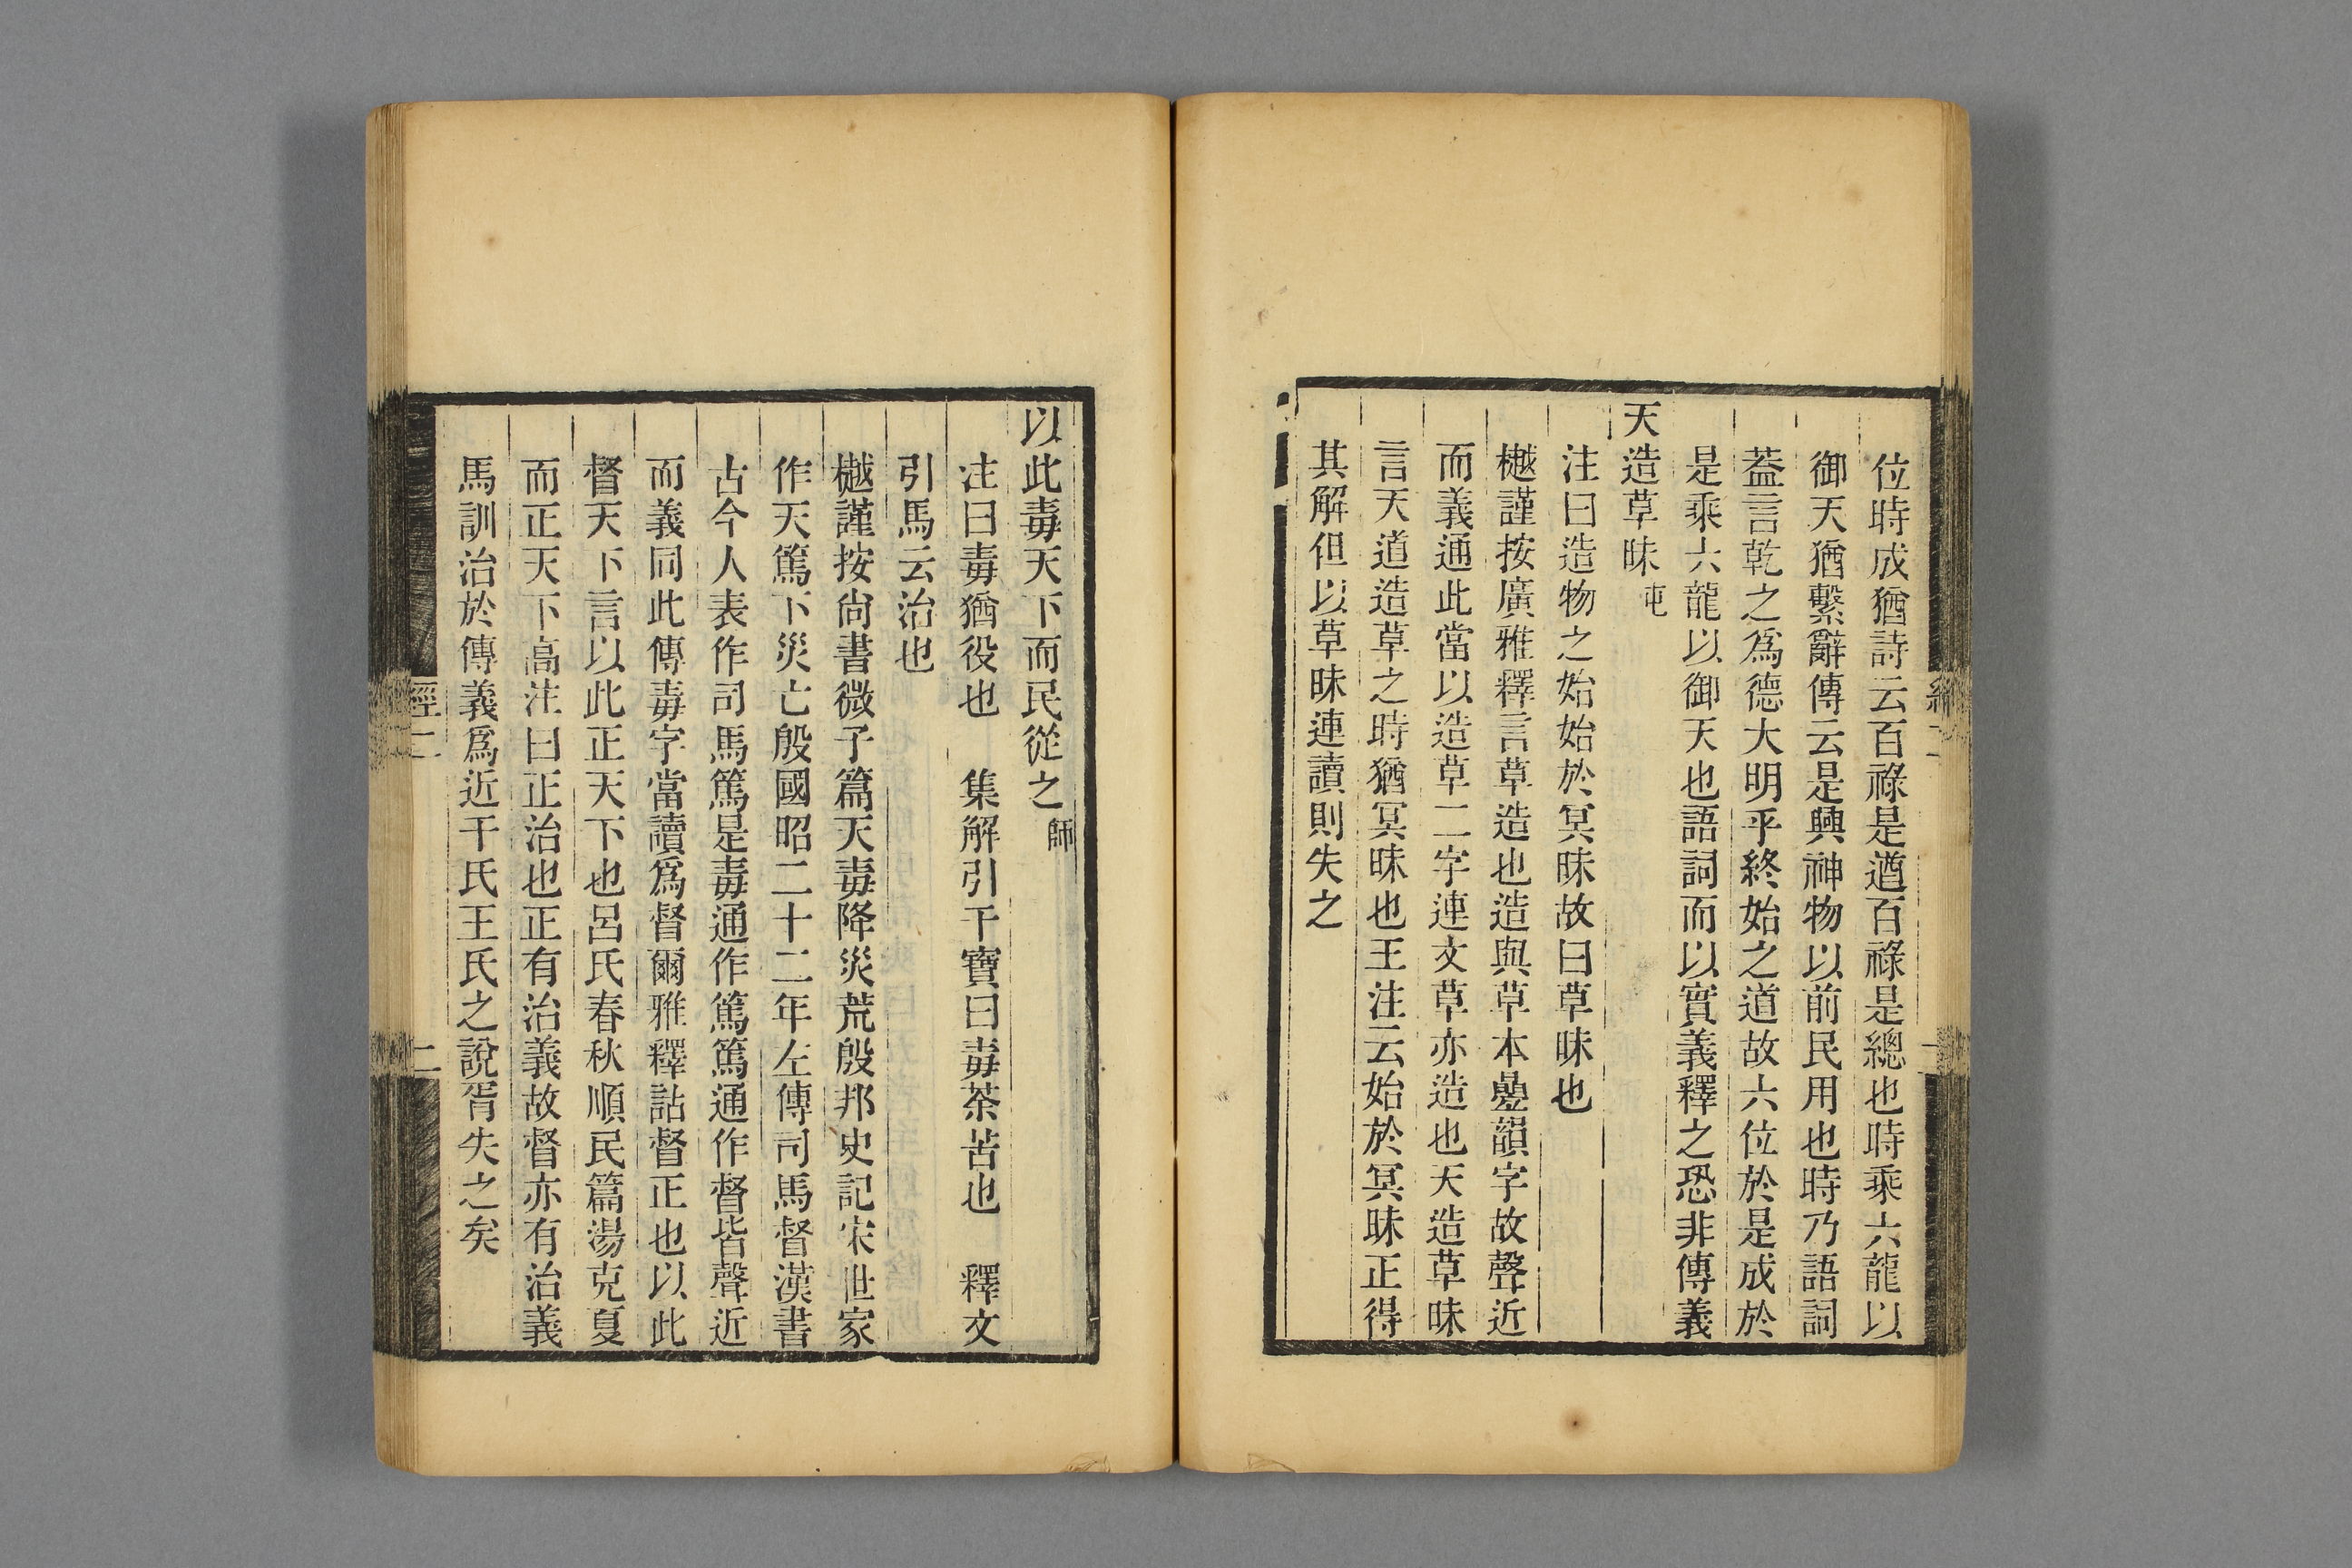 位時成猶詩云百祿是遒百祿是總也時乘六龍以
御天猶繫辭傳云是興神物以前民用也時乃語詞
葢言乾之爲德大明乎終始之道故六位於是成於
是乘六龍以御天也語詞而以實義釋之恐非傳義
天造草昧屯
注曰造物之始始於冥昧故曰草昧也
樾謹按廣雅釋言草造也造與草本疊韻字故聲近
而義通此當以造草二字連文草亦造也天造草昧
言天道造草之時猶冥昧也王注云始於冥昧正得
其解但以草昧連讀則失之
以此毒天下而民從之師
注曰毒猶役也　集解引干寶曰毒荼苦也　釋文
引馬云治也
樾謹按尙書微子篇天毒降災荒殷邦史記宋世家
作天篤下災亡殷國昭二十二年左傳司馬督漢書
古今人表作司馬篤是毒通作篤篤通作督皆聲近
而義同此傳毒字當讀爲督爾雅釋詁督正也以此
督天下言以此正天下也呂氏春秋順民篇湯克夏
而正天下高注曰正治也正有治義故督亦有治義
馬訓治於傳義爲近干氏王氏之說胥失之矣
經二
二